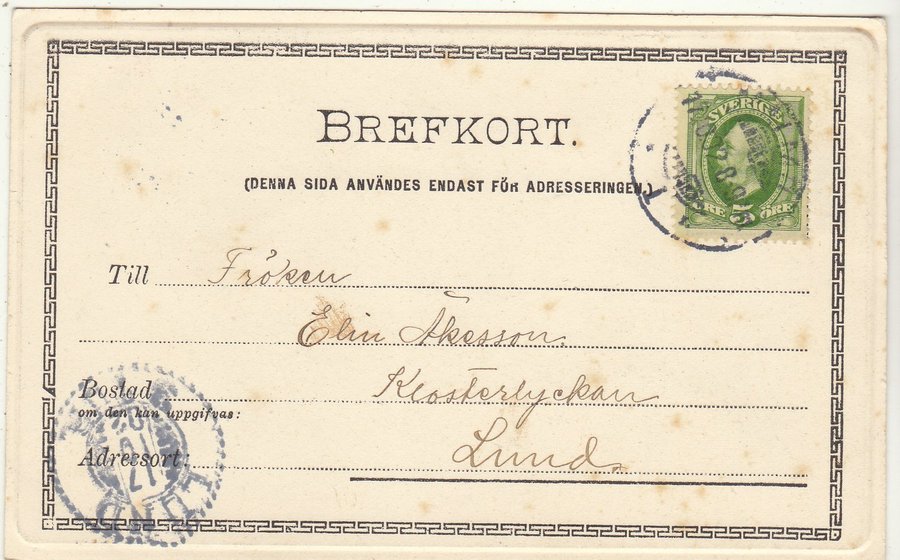 BREFKORT.
(DENNA SIDA ANVÄNDES ENDAST FÖR ADRESSERINGEN.)
SVERIGE
5 ÖRE
Till Fröken
Elin Åkesson.
Bostad Klosterlyckan
om den kan uppgifvas:
Adressort: Lund.
LUND